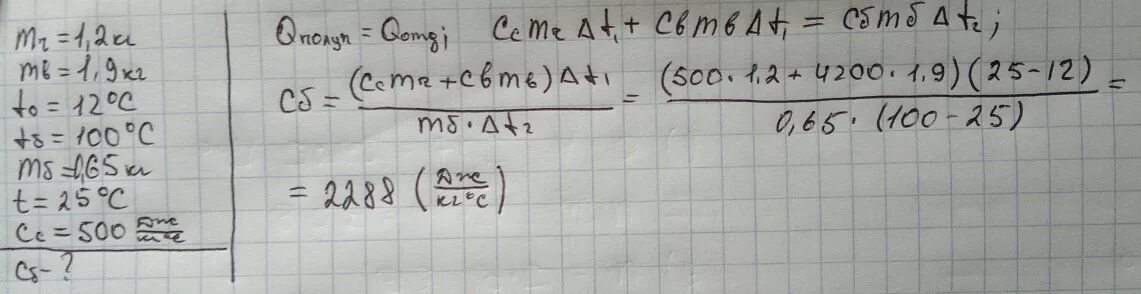 mг = 1,2кг
mв = 1,9кг
t₀ = 12°C
tб = 100°C
mб = 0,65кг
t = 25°C
Cc = 500 Дж/кг°C
Cб - ?
Qполуч = Qотд; Cc mг Δt₁ + Cв mв Δt₁ = Cб mб Δt₂;
Cб = (Cc mг + Cв mв) Δt₁ / mб · Δt₂ = (500 · 1,2 + 4200 · 1,9) (25 - 12) / 0,65 · (100 - 25) =
= 2288 (Дж/кг°C)